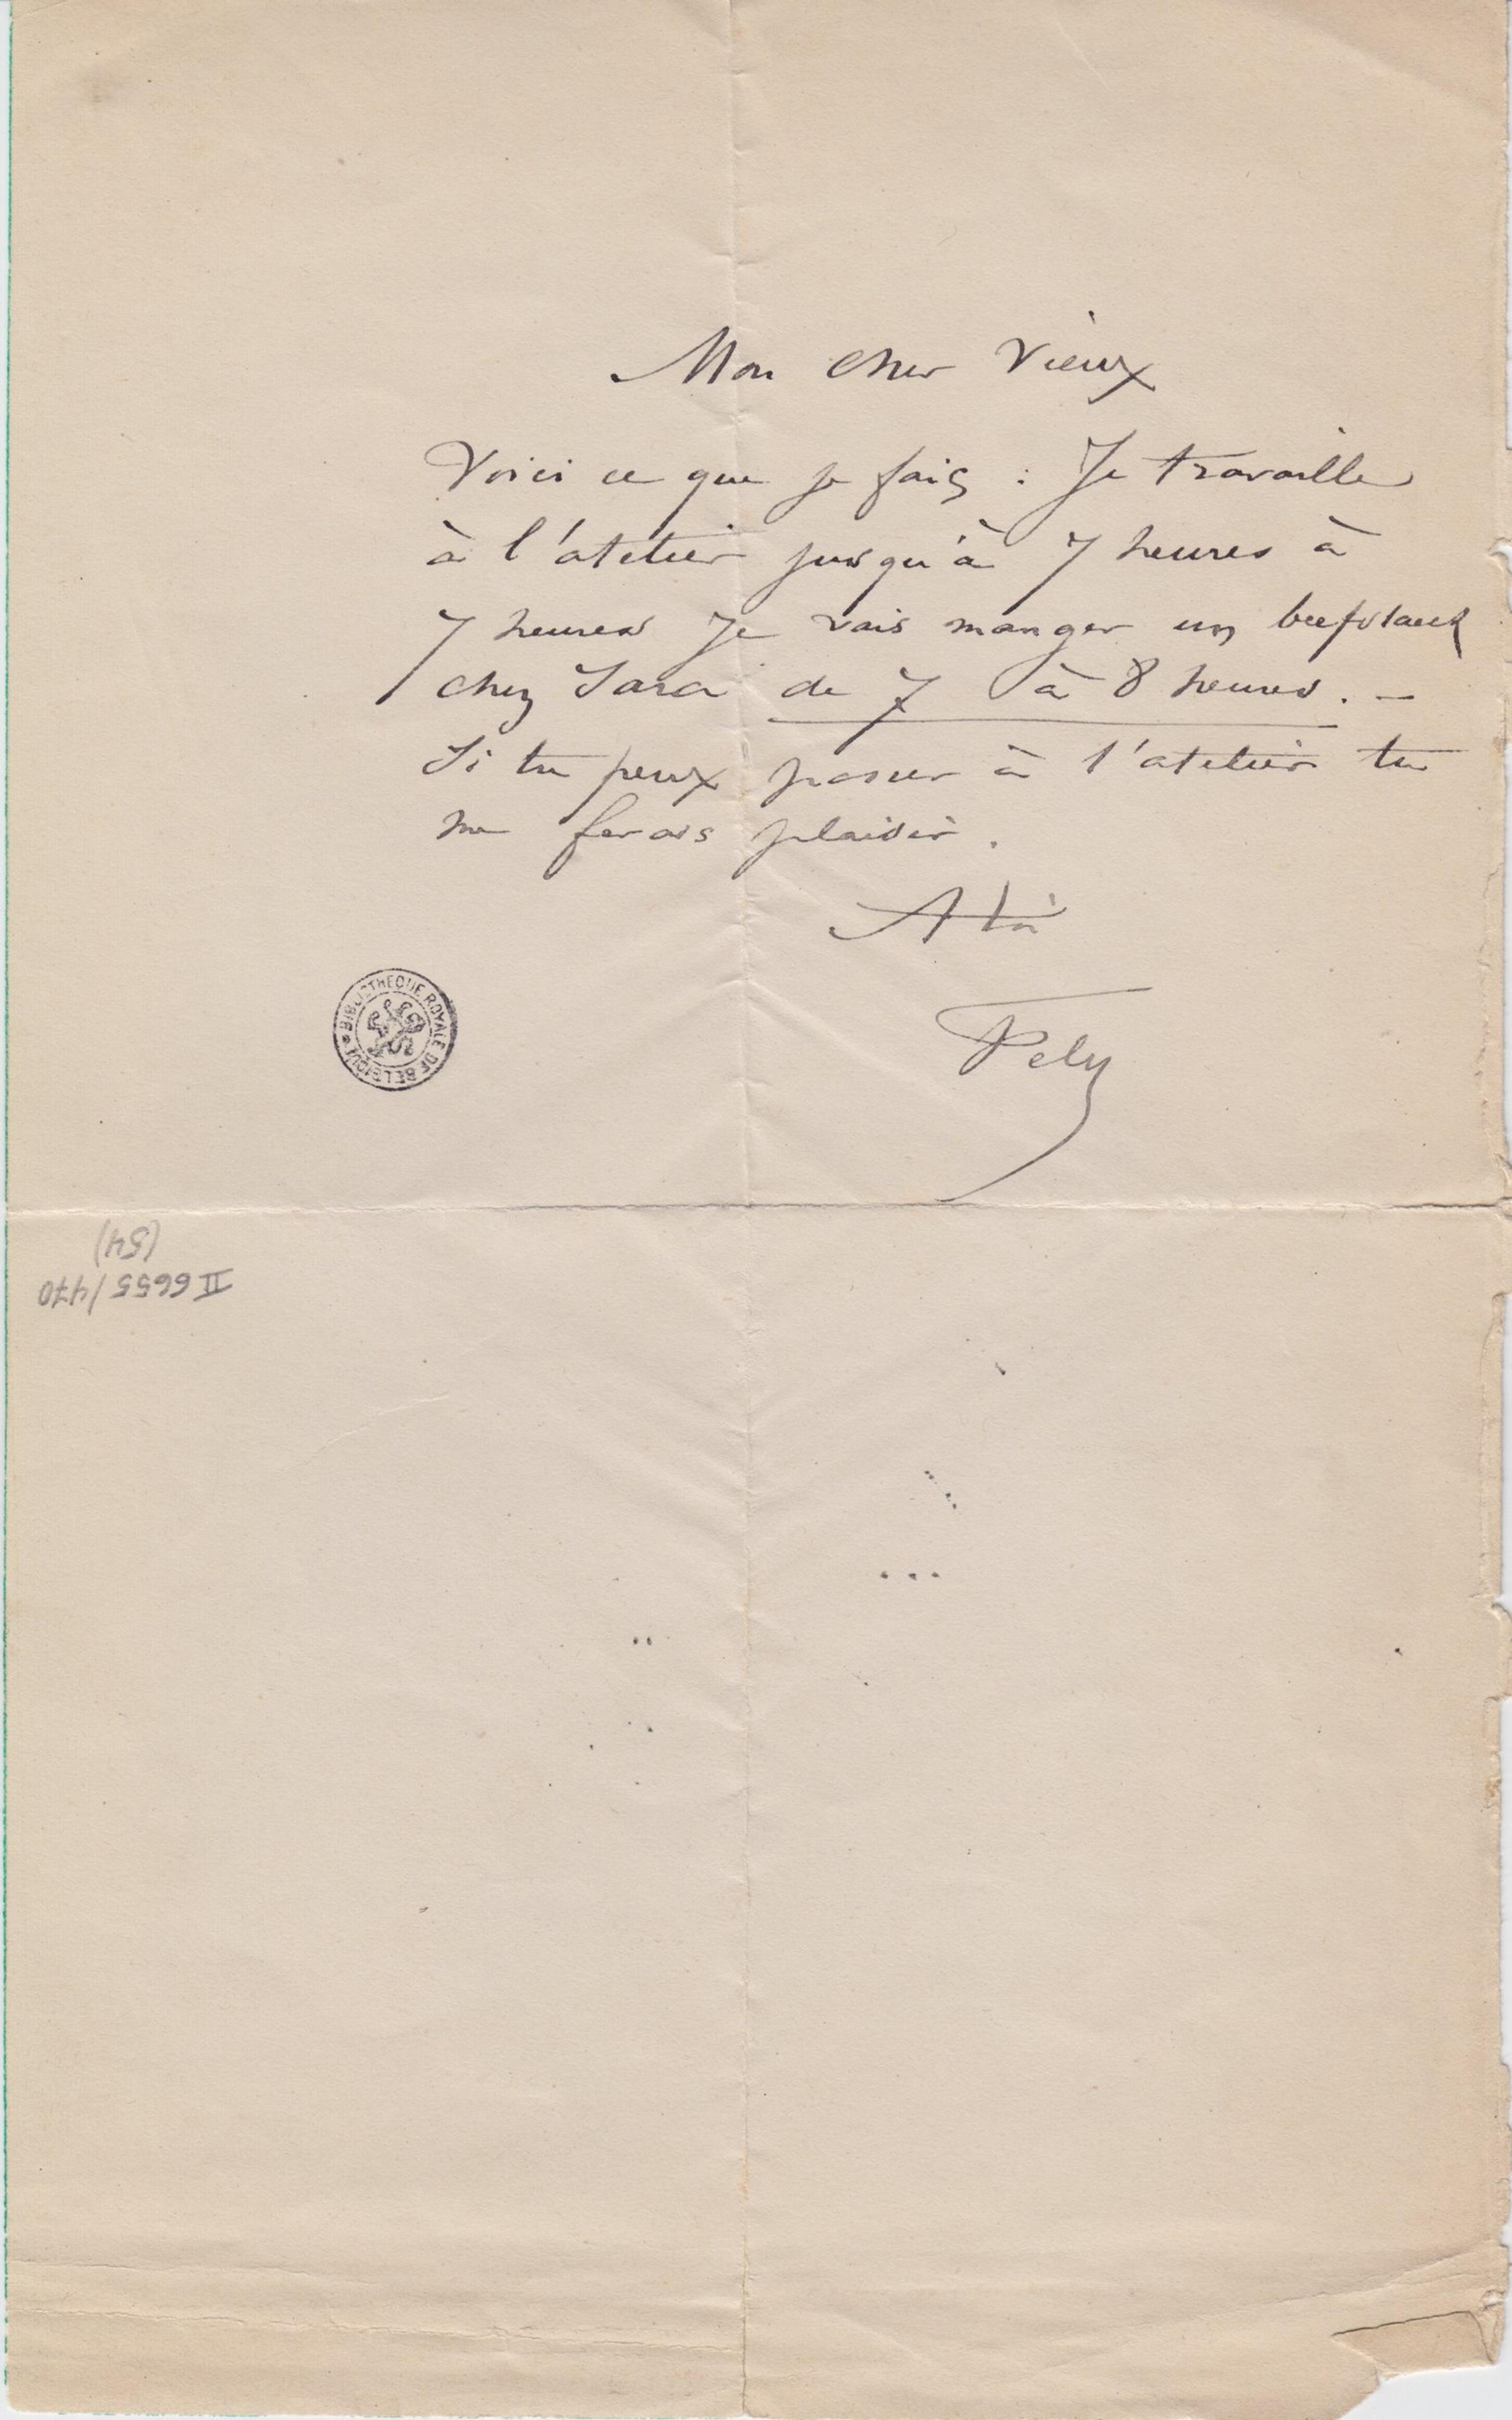 Mon cher Vieux
Voici ce que je fais : Je travaille
à l'atelier jusqu'à 7 heures à
7 heures Je vais manger un beefstaeck
chez Sara de 7 à 8 heures. –
Si tu peux passer à l'atelier tu
me ferais plaisir.
A toi
Fély
BIBLIOTHEQUE ROYALE DE BELGIQUE
II 6655/470
(54)